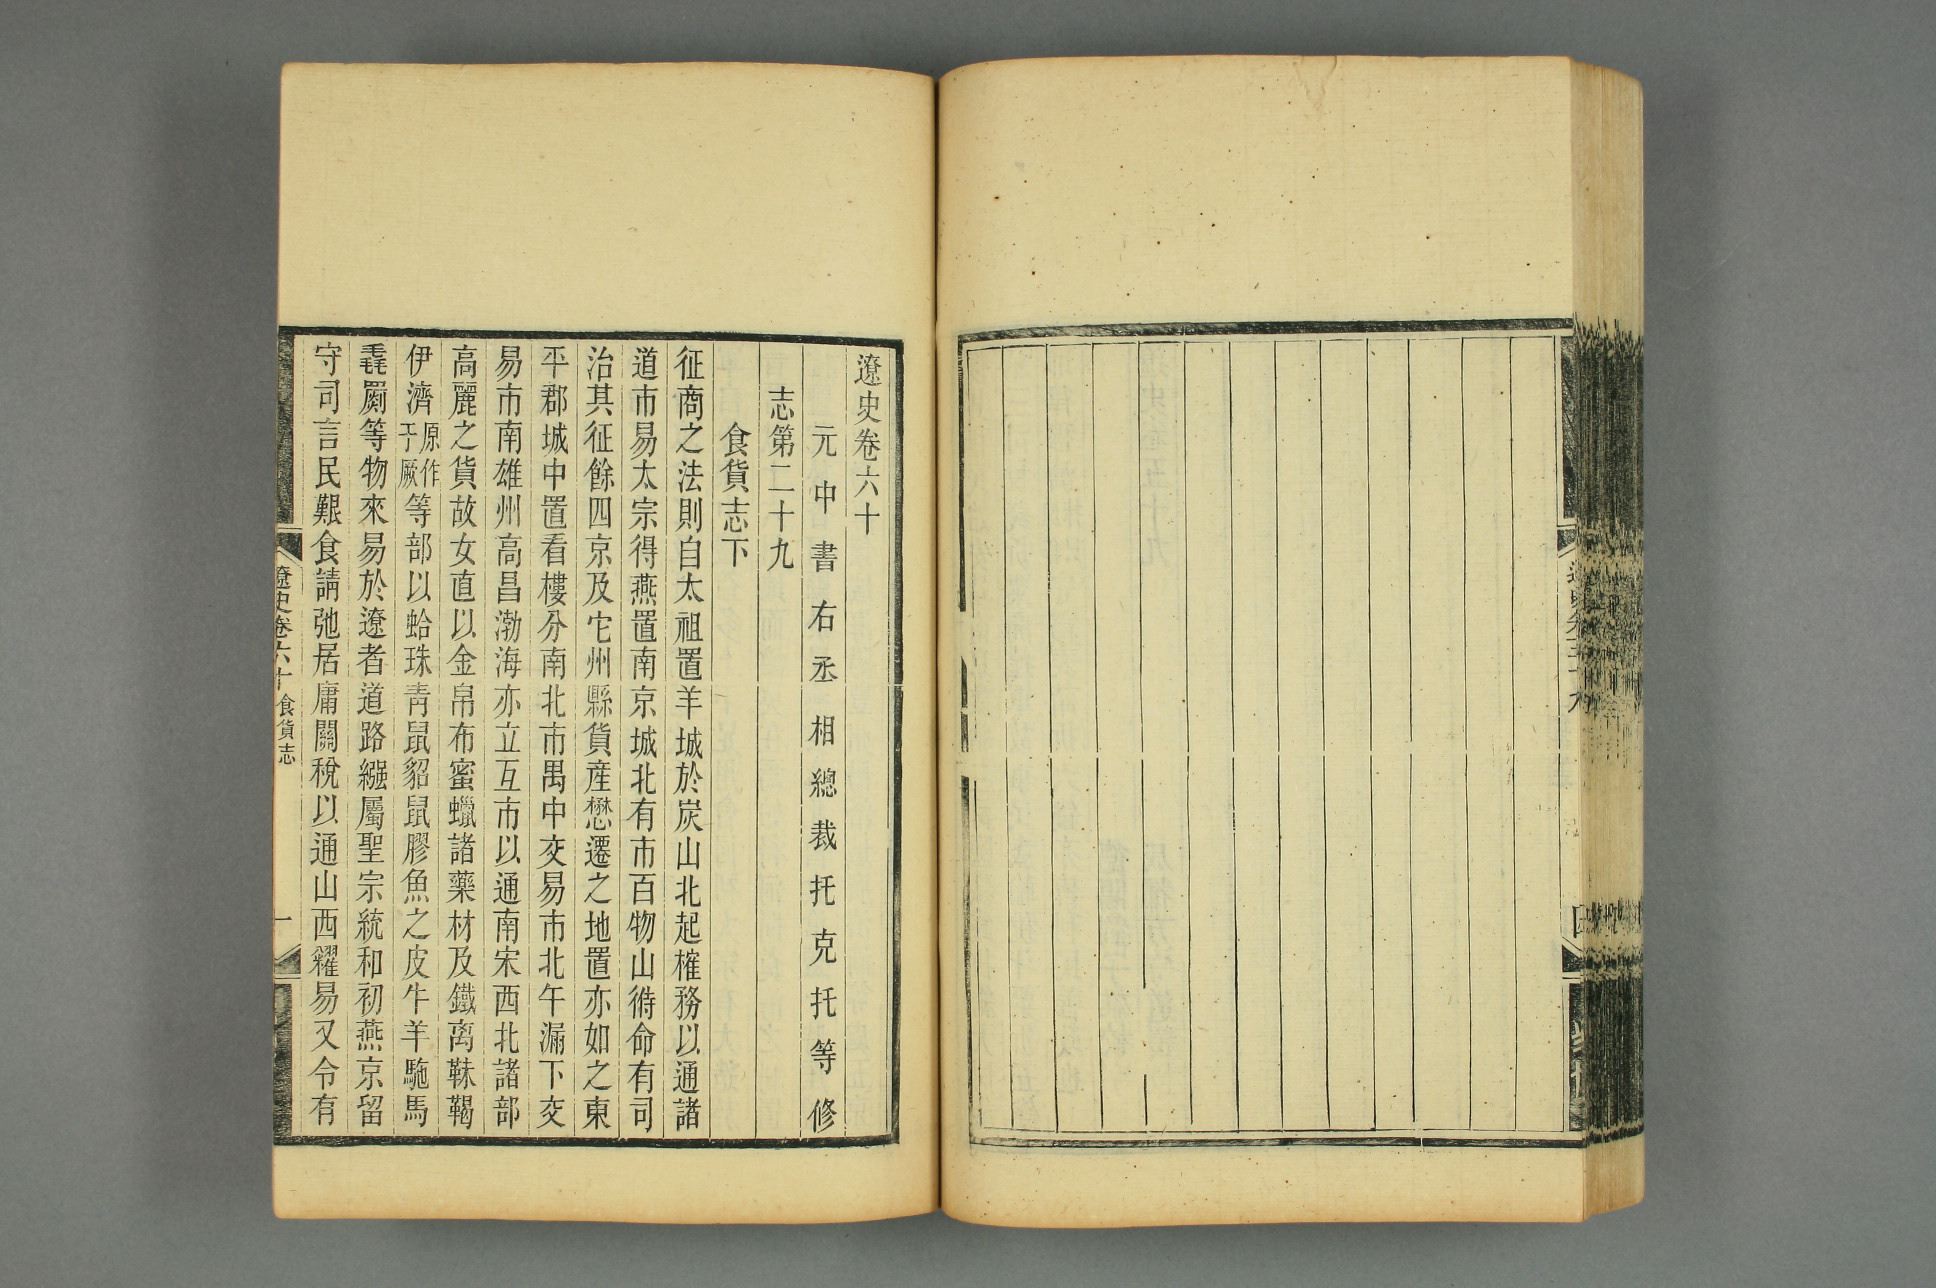 遼史卷六十
元中書右丞相總裁托克托等修
志第二十九
食貨志下
征商之法則自太祖置羊城於炭山北起榷務以通諸
道市易太宗得燕置南京城北有市百物山偫命有司
治其征餘四京及它州縣貨産懋遷之地置亦如之東
平郡城中置看樓分南北市禺中交易市北午漏下交
易市南雄州高昌渤海亦立互市以通南宋西北諸部
高麗之貨故女直以金帛布蜜蠟諸藥材及鐵离靺鞨
伊濟原作于厥等部以蛤珠靑鼠貂鼠膠魚之皮牛羊駞馬
毳罽等物來易於遼者道路繦屬聖宗統和初燕京留
守司言民艱食請弛居庸關稅以通山西糴易又令有
遼史卷六十 食貨志 一